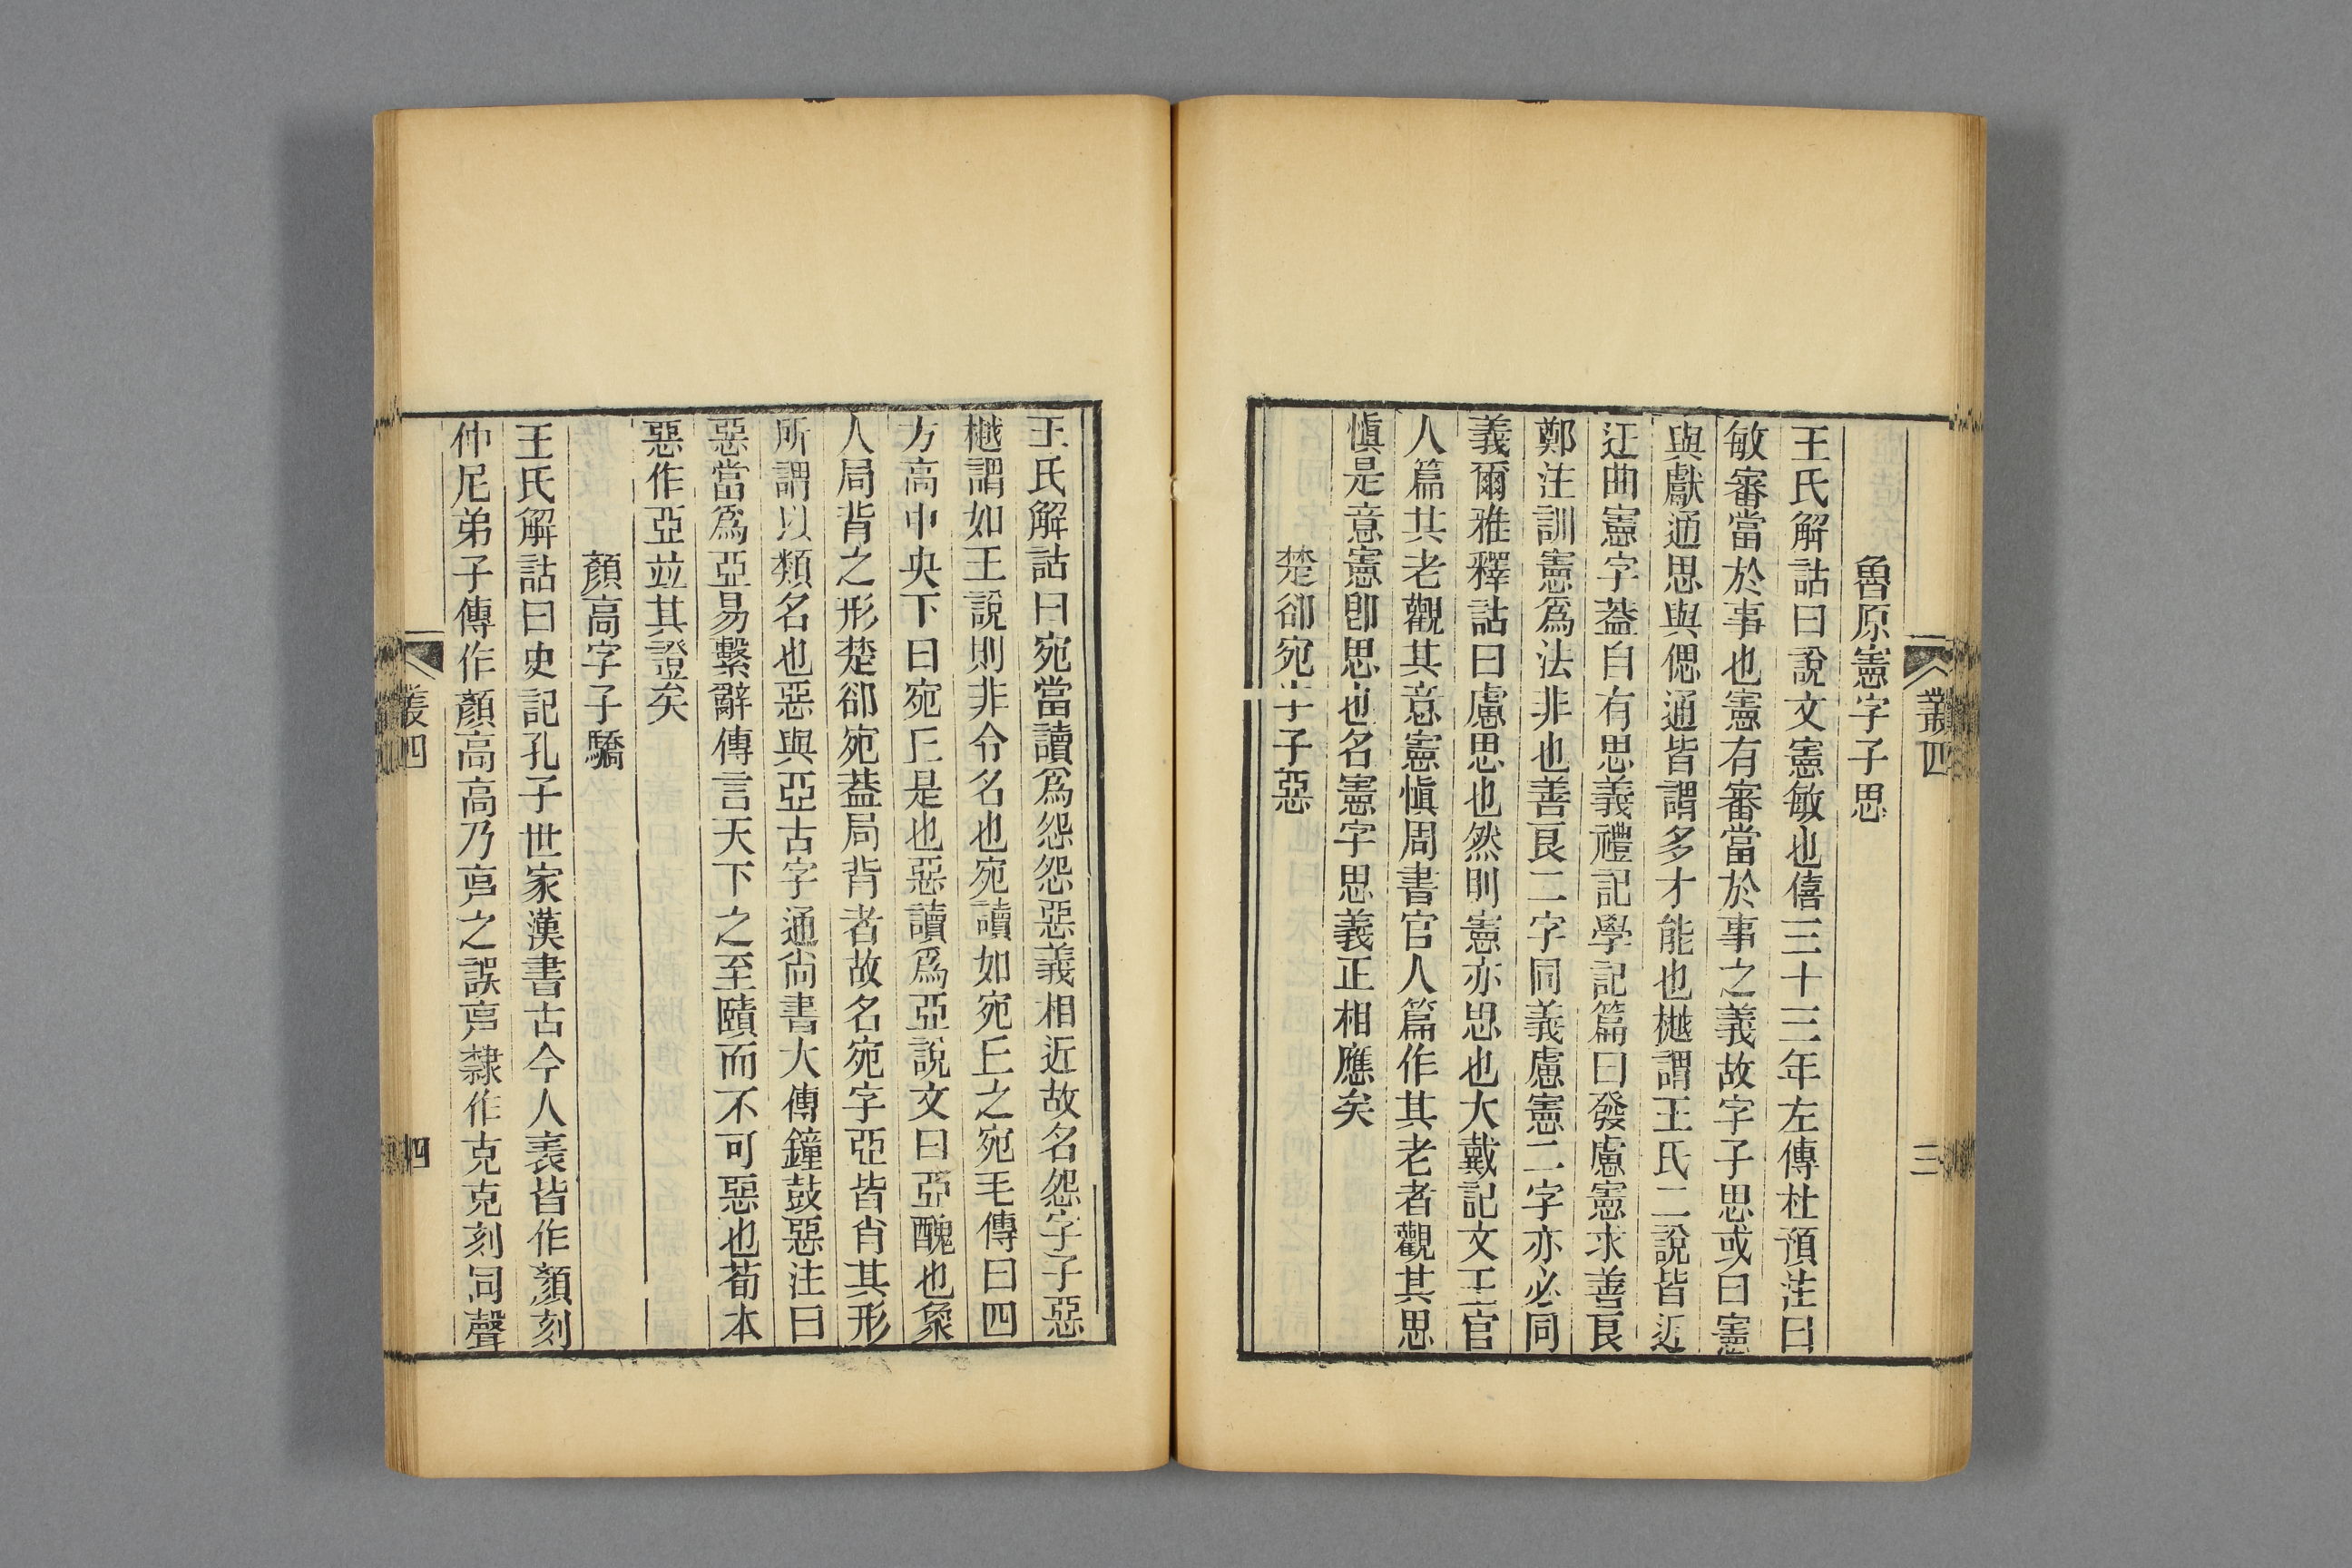 叢四
三
魯原憲字子思
王氏解詁曰說文憲敏也僖三十三年左傳杜預注曰
敏審當於事也憲有審當於事之義故字子思或曰憲
與獻通思與偲通皆謂多才能也樾謂王氏二說皆近
迂曲憲字葢自有思義禮記學記篇曰發慮憲求善良
鄭注訓憲爲法非也善良二字同義慮憲二字亦必同
義爾雅釋詁曰慮思也然則憲亦思也大戴記文王官
人篇其老觀其意憲愼周書官人篇作其老者觀其思
愼是意憲卽思也名憲字思義正相應矣
楚郤宛字子惡
王氏解詁曰宛當讀爲怨怨惡義相近故名怨字子惡
樾謂如王說則非令名也宛讀如宛丘之宛毛傳曰四
方高中央下曰宛丘是也惡讀爲亞說文曰亞醜也象
人局背之形楚郤宛葢局背者故名宛字亞皆肖其形
所謂以類名也惡與亞古字通尙書大傳鐘鼓惡注曰
惡當爲亞易繫辭傳言天下之至賾而不可惡也荀本
惡作亞竝其證矣
顏高字子驕
王氏解詁曰史記孔子世家漢書古今人表皆作顏刻
仲尼弟子傳作顏高高乃㐭之誤㐭隸作克克刻同聲
叢四
四